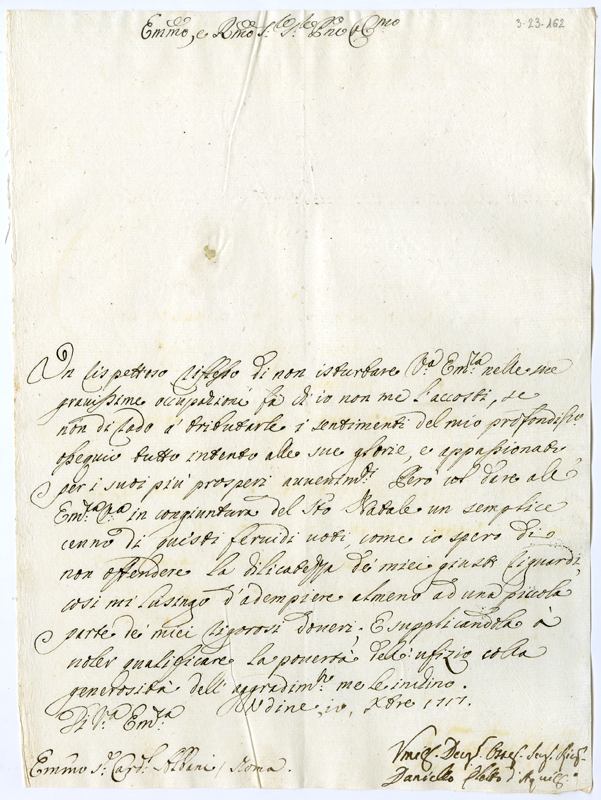 3-23-162
Emmo, e Rmo Sr. Sr. Pne Cmo
Un rispettoso riflesso di non isturbare Va. Emza. nelle sue
gravissime occupazioni fà ch'io non me l'accosti, se
non di rado à tributarle i sentimenti del mio profondisso
ossequio tutto intento alle sue glorie, e appassionato
per i suoi più prosperi avvenimti. Però col dare all'
Emza. Va. in congiuntura del Sto Natale un semplice
cenno di questi fervidi voti, come io spero di
non offendere la dilicatezza de' miei giusti riguardi,
così mi lusingo d'adempiere almeno ad una piccola
parte de' miei rigorosi doveri; E supplicandola à
voler qualificare la povertà dell'ufizio colla
generosità dell'aggradimto. me le inchino.
Di Va. Emza. Udine 10, Xbre 1717.
Umo. Devmo. Obbmo.
Emmo Sr. Cardl. Albani, Roma. Daniello Delfo d'Aquil